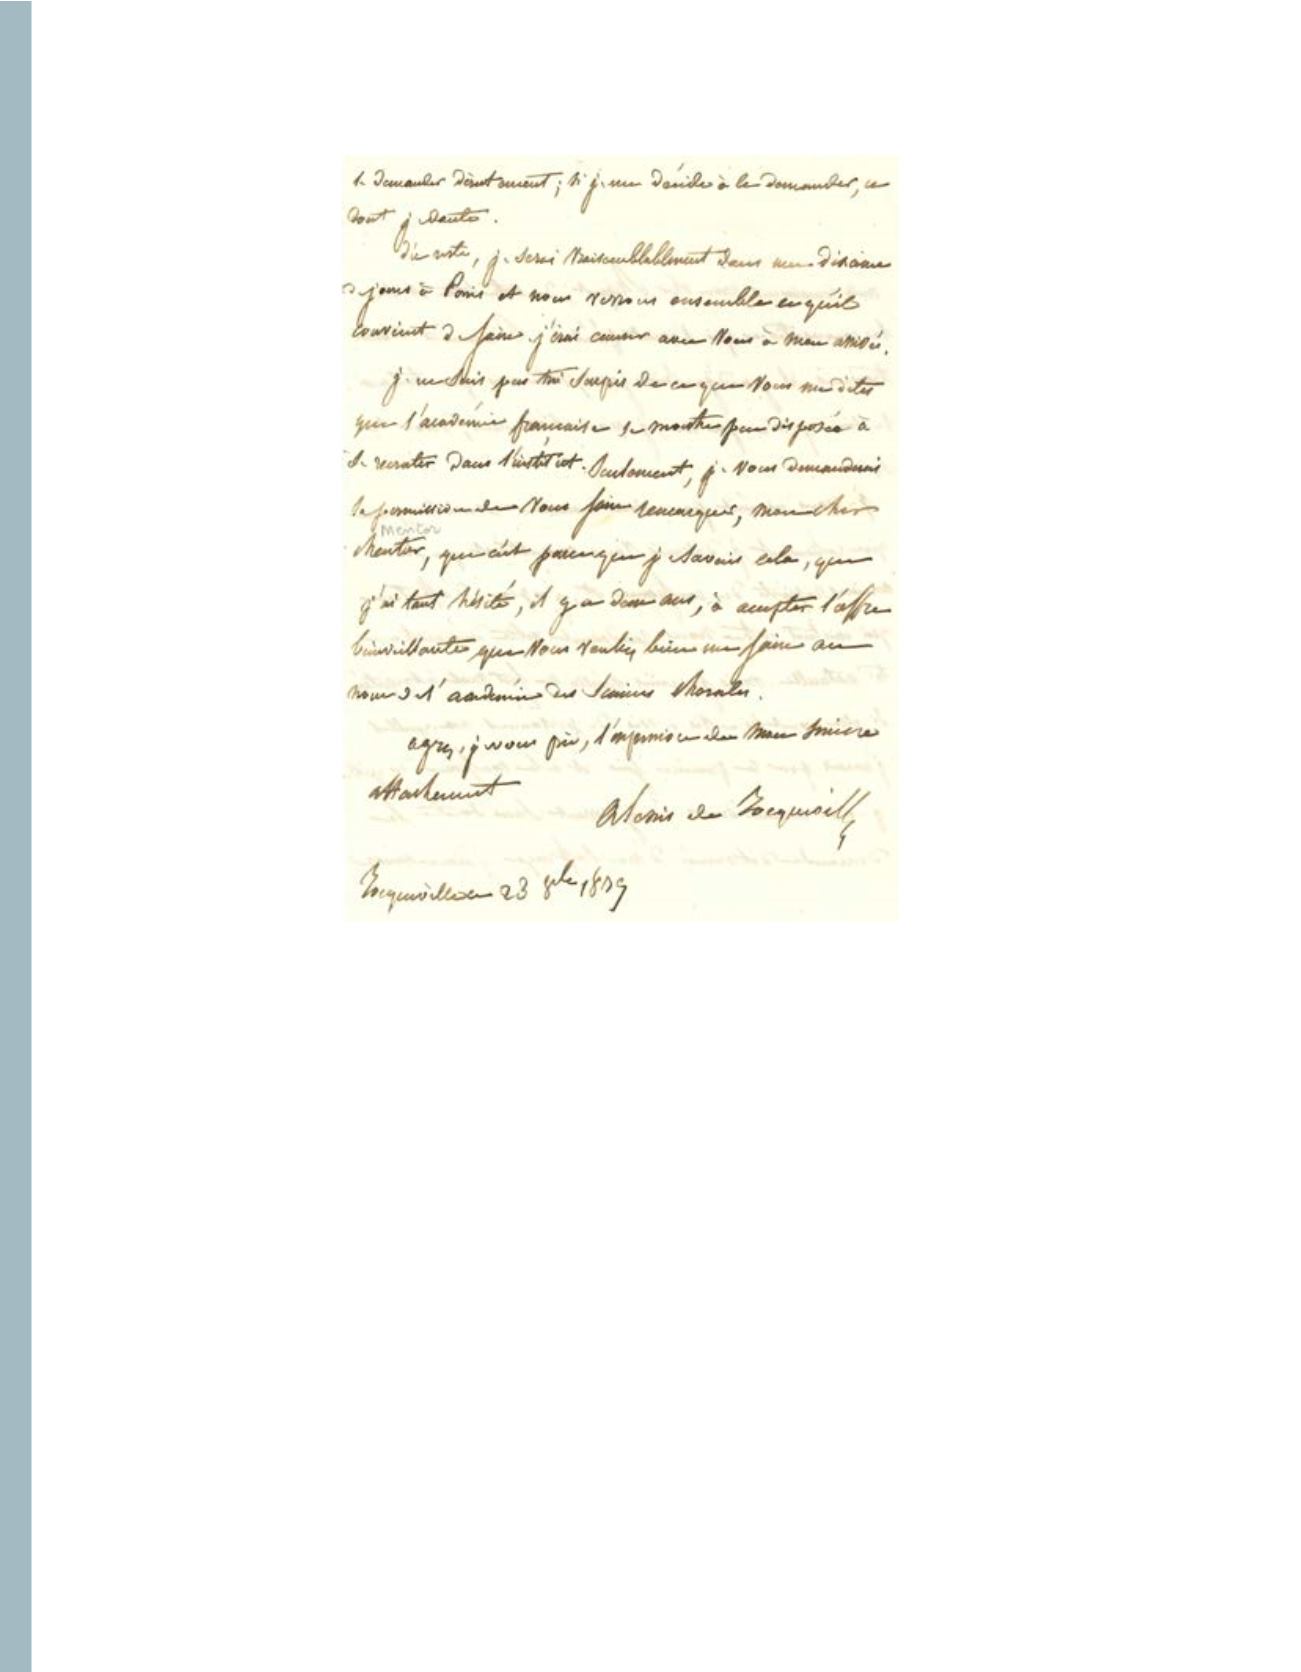 le demander directement; si je me décide à le demander, ce
dont je doute.
Du reste, je serai vraisemblablement dans une dixaine
de jours à Paris et nous verrons ensemble ce qu'il
convient de faire. j'irai causer avec vous à mon arrivée.
je ne suis pas très surpris de ce que vous me dites
que l'académie française se montre peu disposée à
se recruter dans l'institut. Seulement, je vous demanderai
la permission de vous faire remarquer, mon cher
Mentor
Mentor, que c'est parceque je savais cela, que
j'ai tant hésité, il y a deux ans, à accepter l'offre
bienveillante que vous vouliez bien me faire au
nom de l'académie des Sciences Morales.
agréez, je vous prie, l'expression de mon sincère
attachement
Alexis de Tocqueville
Tocqueville ce 23 1839